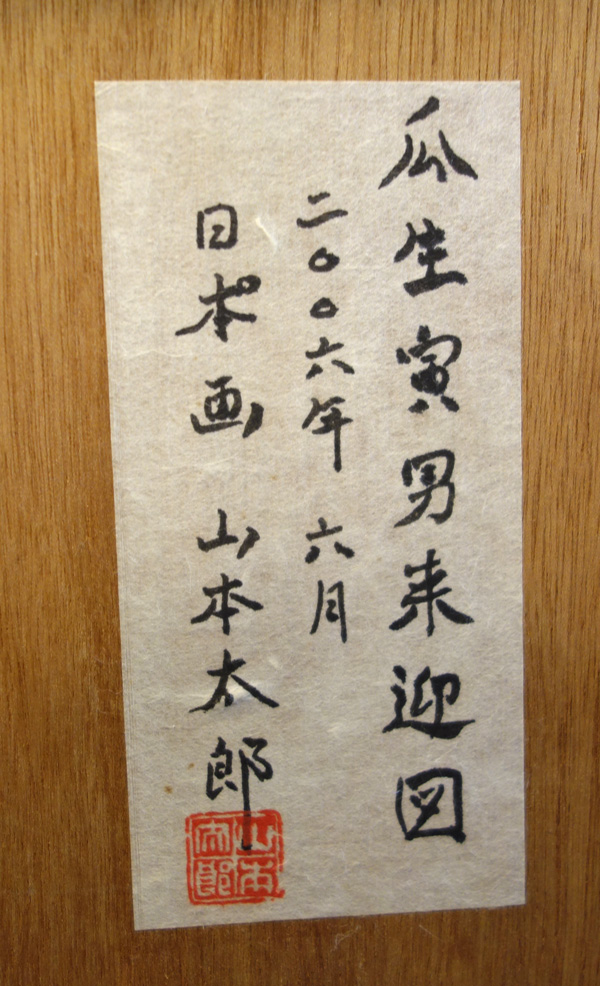 瓜生寅男来迎図
二〇〇六年 六月
日本゜画 山本太郎
山本
太郎